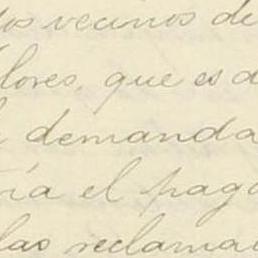 los vecinos de
lores, que es d
demanda
ría el pago
las reclama